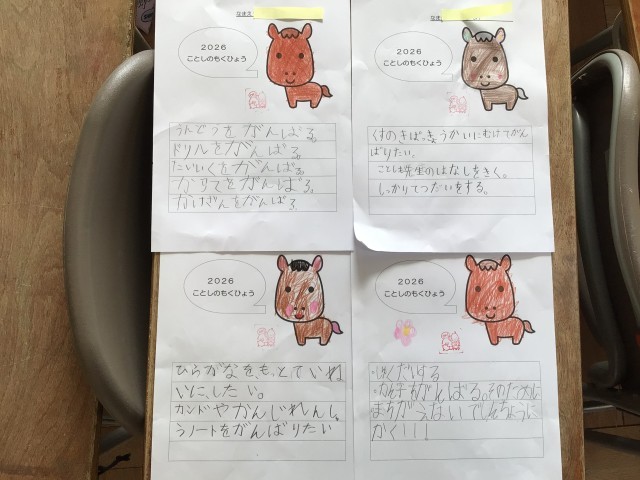 なまえ
2026
ことしのもくひょう
うんどうをがんばる。
ドリルをがんばる。
たいいくをがんばる。
からてをがんばる。
かけざんをがんばる。
なまえ
2026
ことしのもくひょう
くすのきばっきょうかいにむけてがん
ばりたい。
ことしも先生のはなしをきく。
しっかりてつだいをする。
2026
ことしのもくひょう
ひらがなを、もっとていね
いに、したい。
カンドやかんじれんし。
うノートをがんばりたい
2026
ことしのもくひょう
がんばる。そのために
まちがうないでしんちょうに
かく!!!